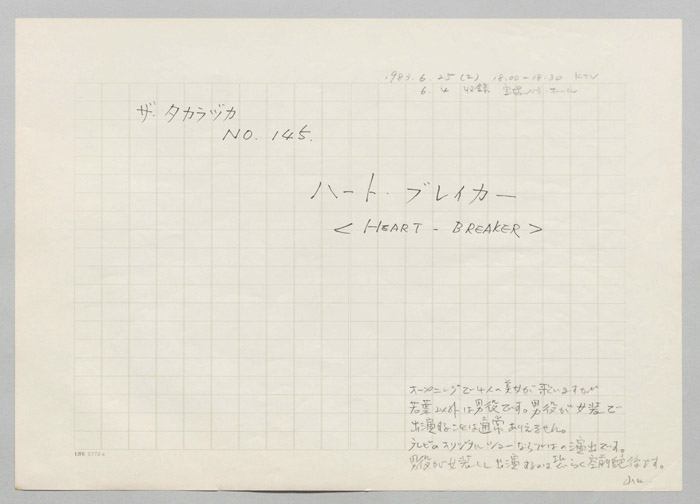 1983. 6. 25 (土) 18:00-18:30 KTV
6. 4 収録 宝塚バウホール
ザ・タカラヅカ
NO. 145.
ハート・ブレイカー
< HEART - BREAKER >
オープニングで4人の美女が歌いますが
若葉以外は男役です。男役が女装で
出演することは通常ありえません。
テレビのオリジナル・ショーならではの演出です。
男役が女装して出演するのは恐らく空前絶後です。